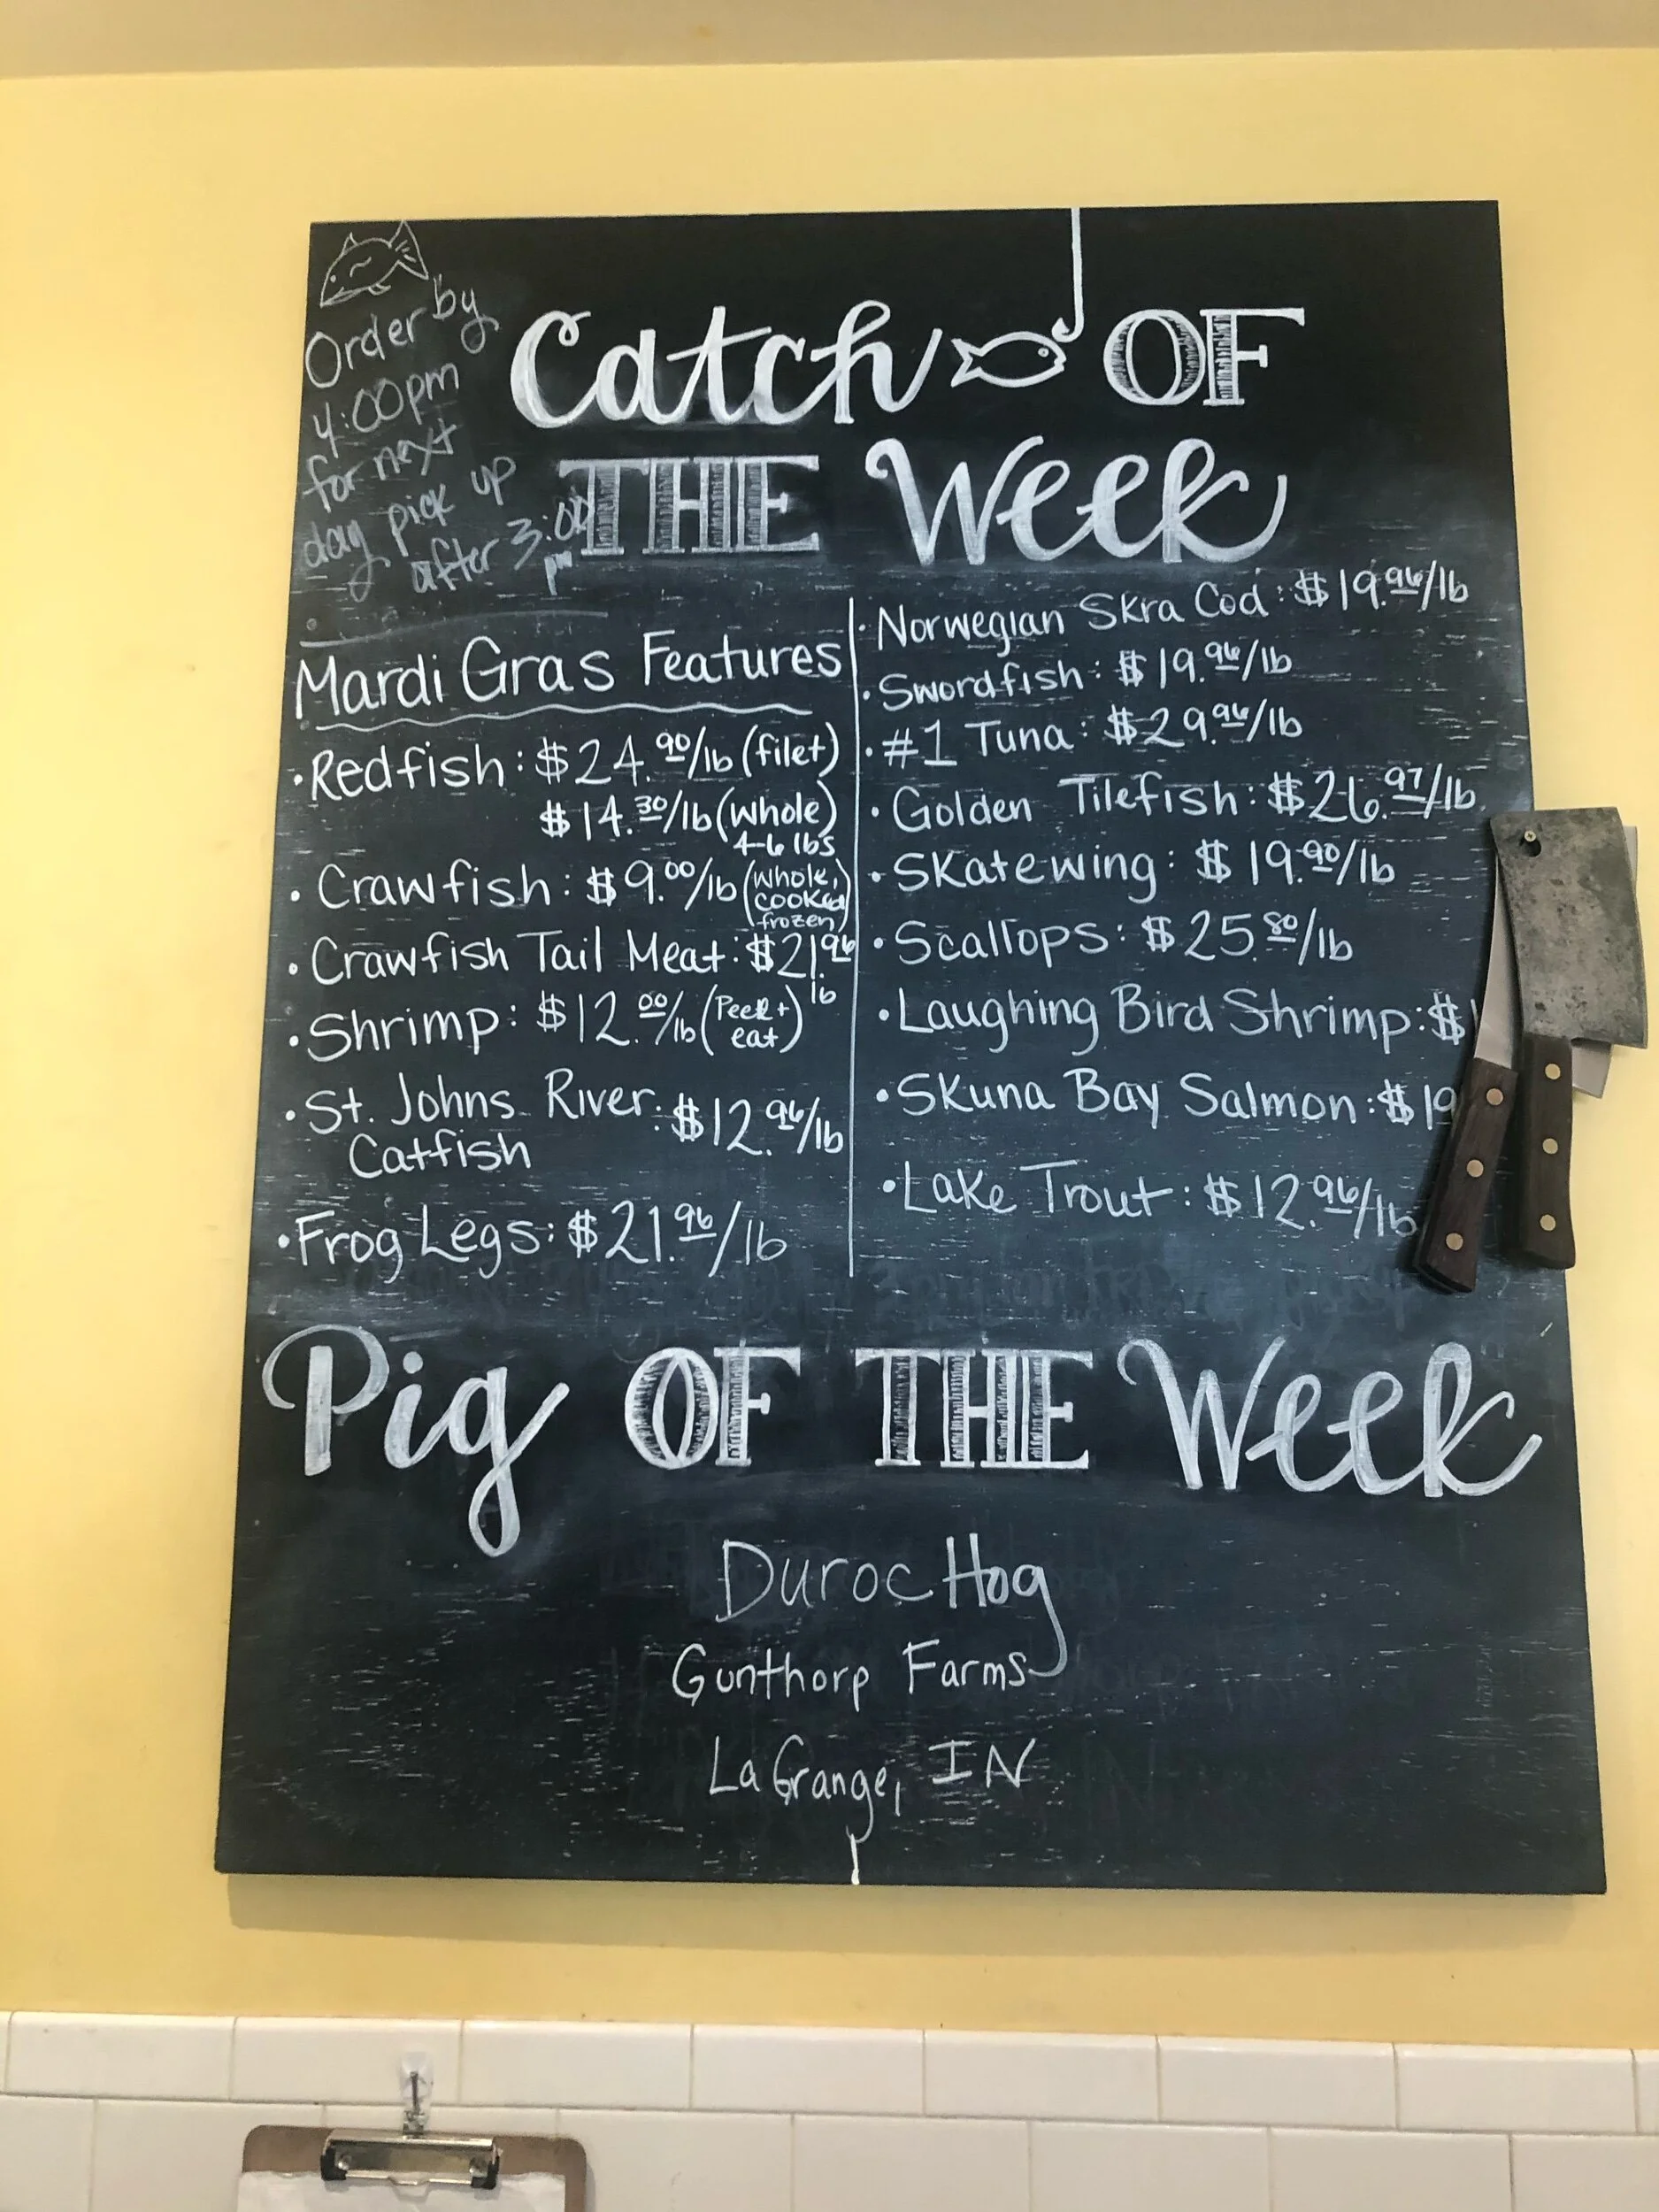 Order by
4:00pm
for next
day pick up
after 3:00
pm
Catch OF
THE Week
Mardi Gras Features
• Redfish: $24.90/lb (filet)
$14.30/lb (whole)
4-6 lbs
• Crawfish: $9.00/lb (whole,
cooked
frozen)
• Crawfish Tail Meat: $21.96
lb
• Shrimp: $12.00/lb (Peel +
eat)
• St. Johns River: $12.96/lb
Catfish
• Frog Legs: $21.96/lb
• Norwegian Skra Cod: $19.96/lb
• Swordfish: $19.96/lb
• #1 Tuna: $29.96/lb
• Golden Tilefish: $26.97/lb
• Skatewing: $19.90/lb
• Scallops: $25.80/lb
• Laughing Bird Shrimp: $
• Skuna Bay Salmon: $19
• Lake Trout: $12.96/lb
Pig OF THE Week
Duroc Hog
Gunthorp Farms
LaGrange, IN